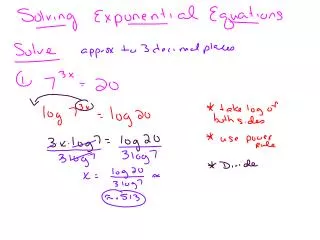 Solving Exponential Equations
Solve approx to 3 decimal places
① 7^{3x} = 20
log 7^{3x} = log 20
* take log of both sides
3x·log 7 = log 20
* use power rule
3 log 7    3 log 7
* Divide
x = log 20 / 3 log 7 ≈
≈ .513